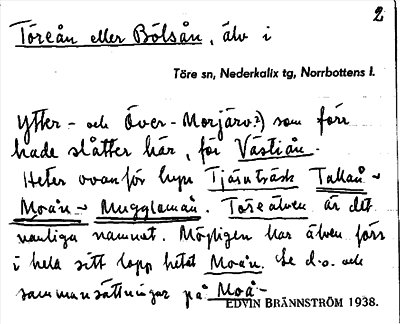 2
Töreån eller Bölsån, älv i
Töre sn, Nederkalix tg, Norrbottens l.
Ytter- och Över-Morjärv²) som förr
hade slåtter här, för Västiån.
Heter ovanför byn Tjärnträsk Tallån ~
Moån ~ Mugglamån. Töreälven är det
vanliga namnet. Möjligen har älven förr
i hela sitt lopp hetat Moån. Se d.o. och
sammansättningar på Moå-
EDVIN BRÄNNSTRÖM 1938.